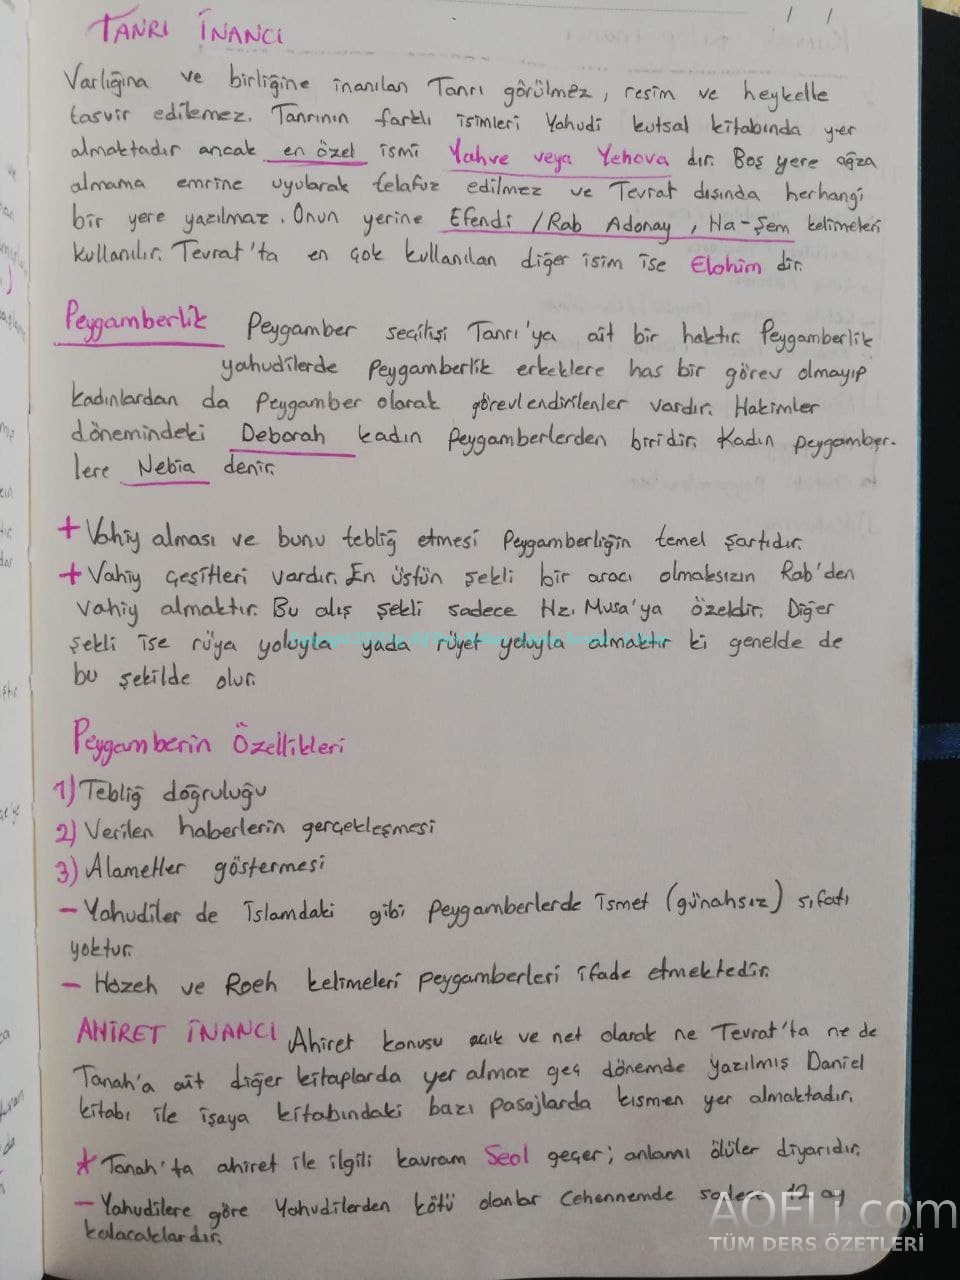 TANRI İNANCI
Varlığına ve birliğine inanılan Tanrı görülmez, resim ve heykelle
tasvir edilemez. Tanrının farklı isimleri Yahudi kutsal kitabında yer
almaktadır ancak en özel ismi Yahve veya Yehova dır. Boş yere ağza
almama emrine uyularak telafuz edilmez ve Tevrat dışında herhangi
bir yere yazılmaz. Onun yerine Efendi /Rab Adonay, Ha-Şem kelimeleri
kullanılır. Tevrat'ta en çok kullanılan diğer isim ise Elohim dir.
Peygamberlik Peygamber seçilişi Tanrı'ya ait bir haktır. Peygamberlik
yahudilerde peygamberlik erkeklere has bir görev olmayıp
kadınlardan da peygamber olarak görevlendirilenler vardır. Hakimler
dönemindeki Deborah kadın peygamberlerden biridir. Kadın peygamber-
lere Nebia denir.
+ Vahiy alması ve bunu tebliğ etmesi peygamberliğin temel şartıdır.
+ Vahiy çeşitleri vardır. En üstün şekli bir aracı olmaksızın Rab'den
vahiy almaktır. Bu alış şekli sadece Hz. Musa'ya özeldir. Diğer
şekli ise rüya yoluyla yada rüyet yoluyla almaktır ki genelde de
bu şekilde olur.
Peygamberin Özellikleri
1) Tebliğ doğruluğu
2) Verilen haberlerin gerçekleşmesi
3) Alametler göstermesi
- Yahudiler de İslamdaki gibi peygamberlerde ismet (günahsız) sıfatı
yoktur.
- Hozeh ve Roeh kelimeleri peygamberleri ifade etmektedir.
AHİRET İNANCI Ahiret konusu açık ve net olarak ne Tevrat'ta ne de
Tanah'a ait diğer kitaplarda yer almaz geç dönemde yazılmış Daniel
kitabı ile işaya kitabındaki bazı pasajlarda kısmen yer almaktadır.
* Tanah'ta ahiret ile ilgili kavram Seol geçer; anlamı ölüler diyarıdır.
- Yahudilere göre Yahudilerden kötü olanlar cehennemde sadece 12 ay
kalacaklardır.
AOFLi.com
TÜM DERS ÖZETLERİ